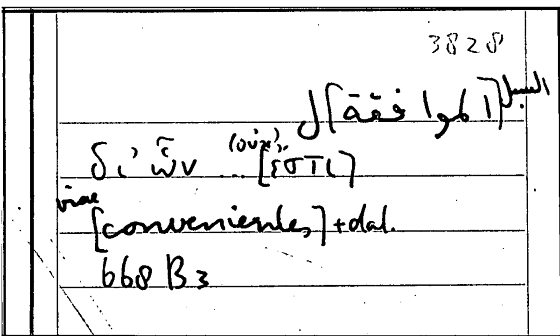 3828
السبل [الموافقة] ل
δι' ὧν ... (οὐκ) [ἔστι]
viae
[convenientes] + dat.
668 B 3